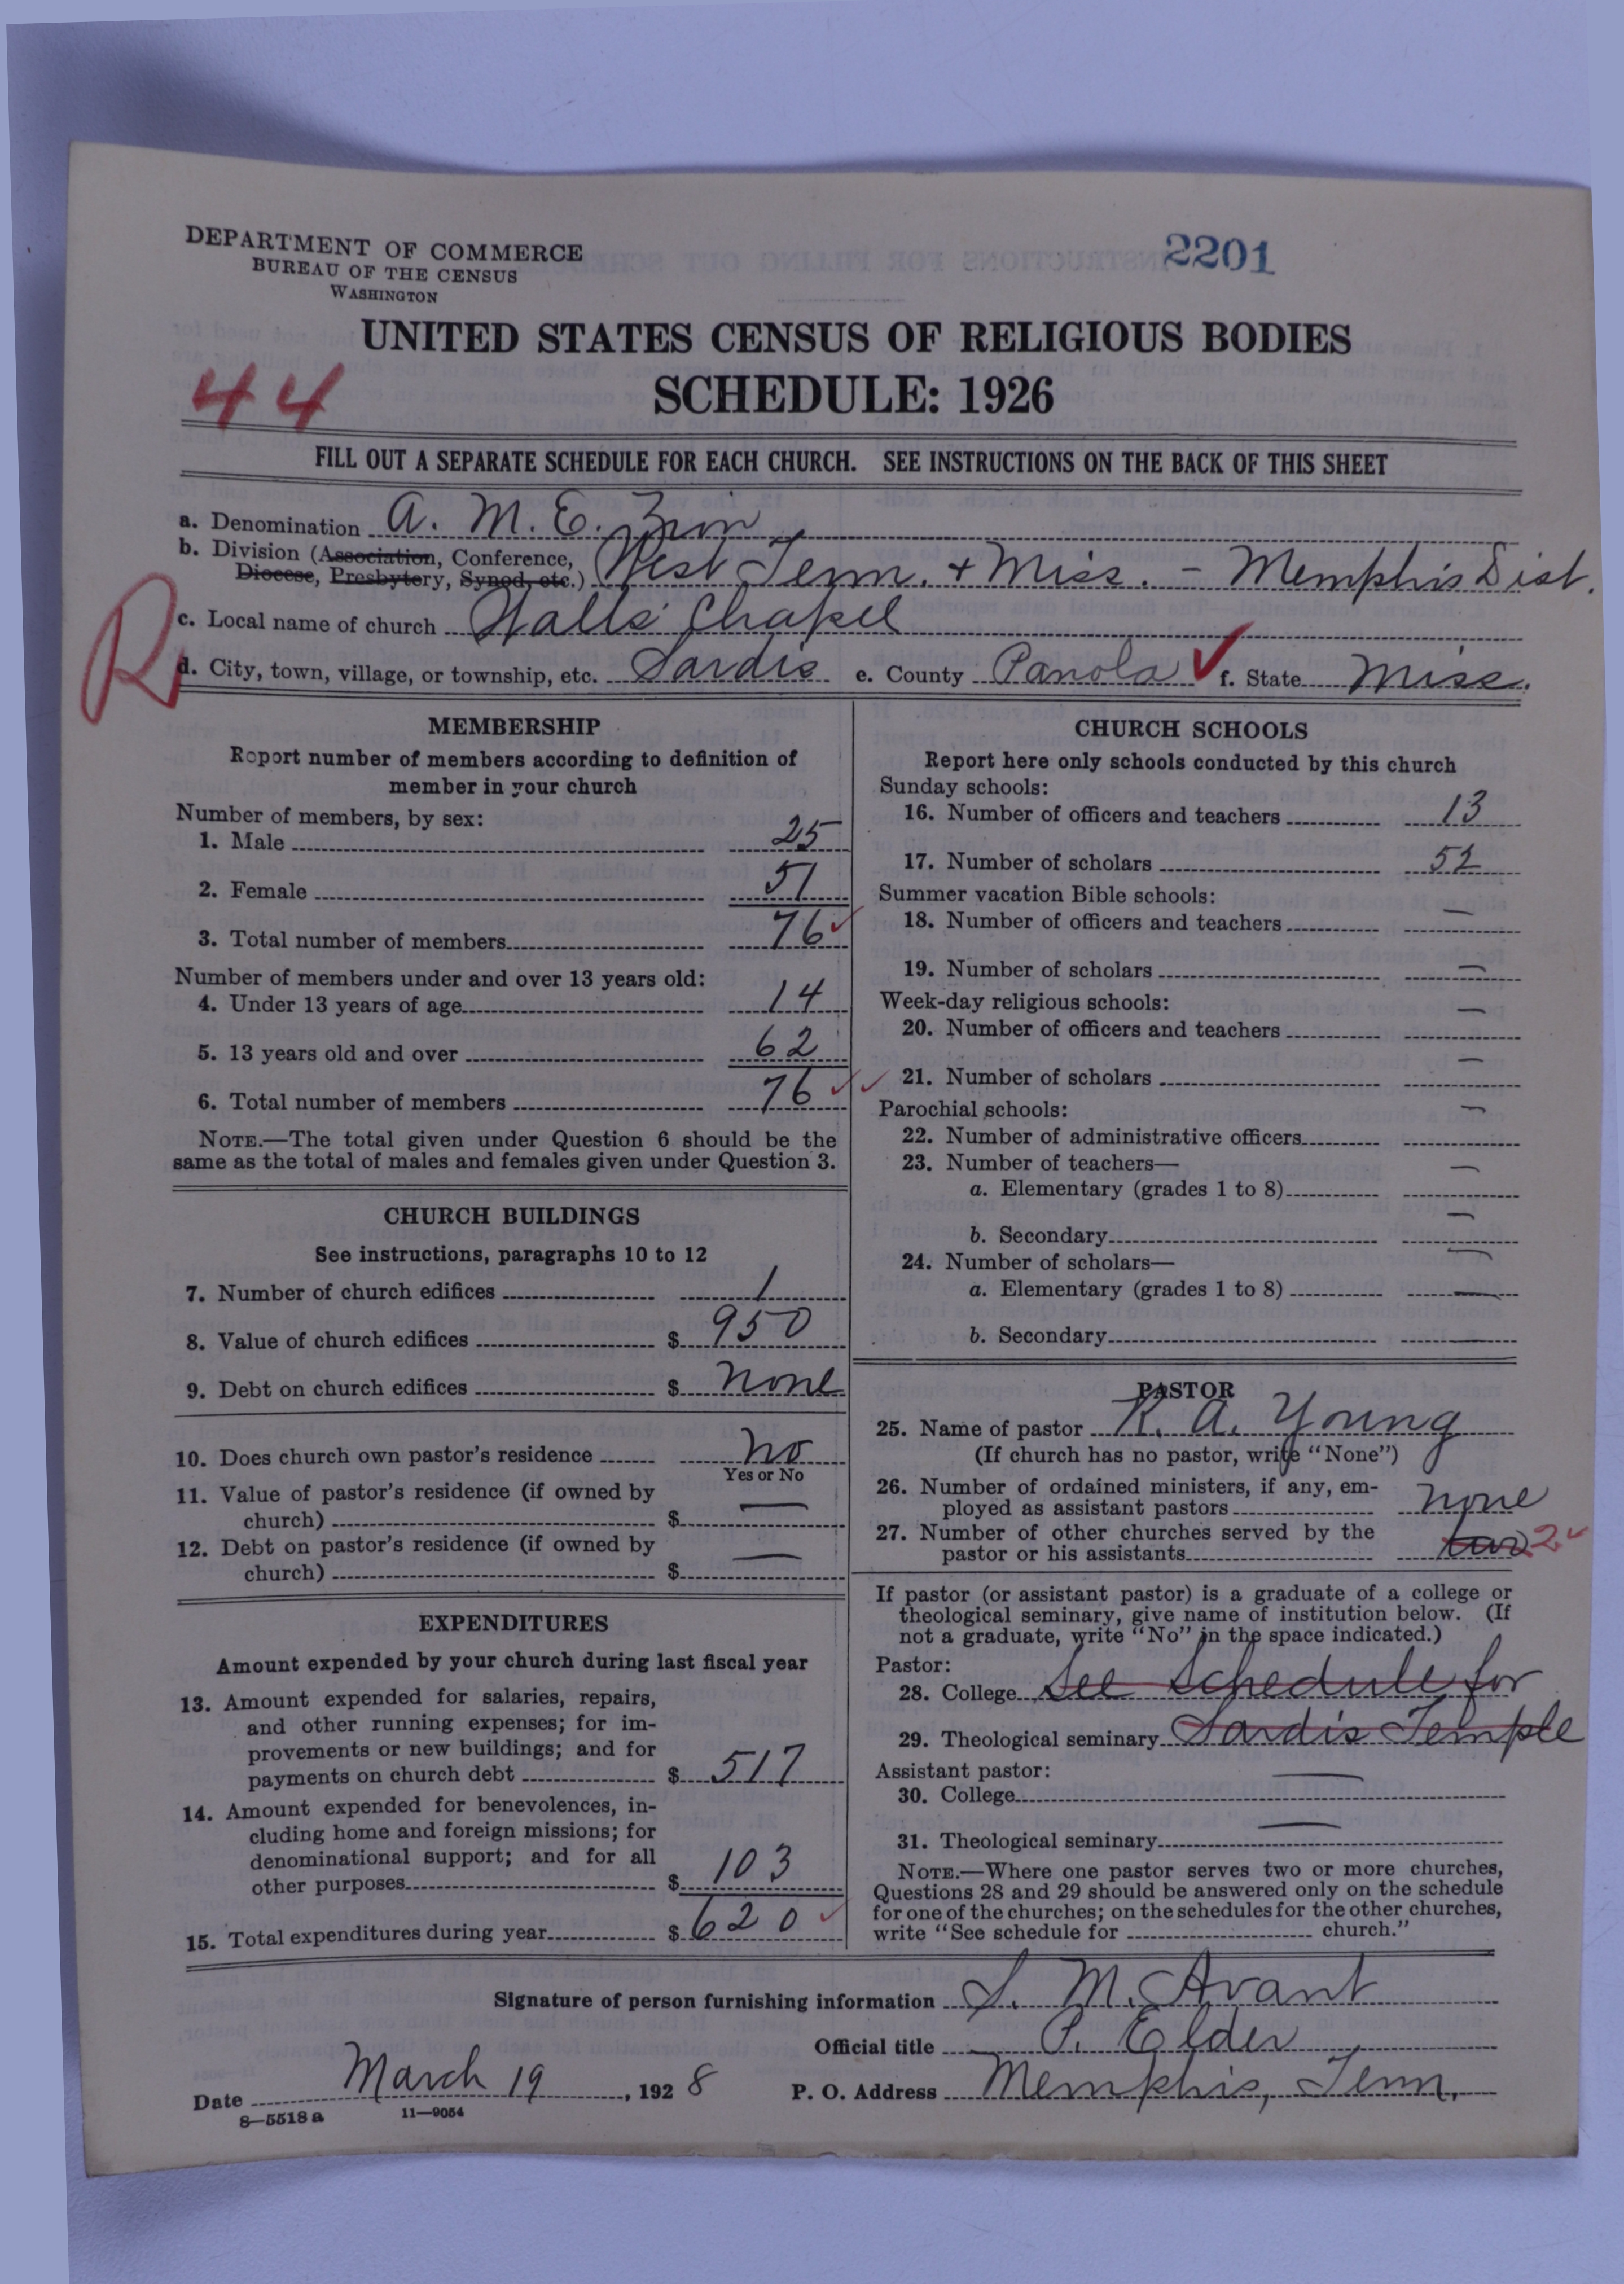 DEPARTMENT OF COMMERCE
BUREAU OF THE CENSUS
WASHINGTON
2201
UNITED STATES CENSUS OF RELIGIOUS BODIES
SCHEDULE: 1926
44
FILL OUT A SEPARATE SCHEDULE FOR EACH CHURCH. SEE INSTRUCTIONS ON THE BACK OF THIS SHEET
a. Denomination A. M. E. Zion
b. Division (Association, Conference, Diocese, Presbytery, Synod, etc.) West Tenn. + Miss. - Memphis Dist.
R
c. Local name of church Halls Chapel
d. City, town, village, or township, etc. Sardis e. County Panola ✓ f. State Miss.
MEMBERSHIP
Report number of members according to definition of
member in your church
Number of members, by sex:
1. Male 25
2. Female 51
3. Total number of members 76 ✓
Number of members under and over 13 years old:
4. Under 13 years of age 14
5. 13 years old and over 62
6. Total number of members 76 ✓ ✓
NOTE.—The total given under Question 6 should be the
same as the total of males and females given under Question 3.
CHURCH BUILDINGS
See instructions, paragraphs 10 to 12
7. Number of church edifices 1
8. Value of church edifices $ 950
9. Debt on church edifices $ none
10. Does church own pastor's residence no
Yes or No
11. Value of pastor's residence (if owned by
church) $ —
12. Debt on pastor's residence (if owned by
church) $ —
EXPENDITURES
Amount expended by your church during last fiscal year
13. Amount expended for salaries, repairs,
and other running expenses; for im-
provements or new buildings; and for
payments on church debt $ 517
14. Amount expended for benevolences, in-
cluding home and foreign missions; for
denominational support; and for all
other purposes $ 103
15. Total expenditures during year $ 620 ✓
CHURCH SCHOOLS
Report here only schools conducted by this church
Sunday schools:
16. Number of officers and teachers 13
17. Number of scholars 52
Summer vacation Bible schools:
18. Number of officers and teachers —
19. Number of scholars —
Week-day religious schools:
20. Number of officers and teachers —
21. Number of scholars —
Parochial schools:
22. Number of administrative officers —
23. Number of teachers—
a. Elementary (grades 1 to 8) —
b. Secondary —
24. Number of scholars—
a. Elementary (grades 1 to 8) —
b. Secondary —
PASTOR
25. Name of pastor R. A. Young
(If church has no pastor, write "None")
26. Number of ordained ministers, if any, em-
ployed as assistant pastors none
27. Number of other churches served by the
pastor or his assistants two 2 ✓
If pastor (or assistant pastor) is a graduate of a college or
theological seminary, give name of institution below. (If
not a graduate, write "No" in the space indicated.)
Pastor:
28. College See Schedule for
29. Theological seminary Sardis Temple
Assistant pastor:
30. College —
31. Theological seminary —
NOTE.—Where one pastor serves two or more churches,
Questions 28 and 29 should be answered only on the schedule
for one of the churches; on the schedules for the other churches,
write "See schedule for ........ church."
Signature of person furnishing information S. M. Avant
Official title P. Elder
Date March 19, 1928 P. O. Address Memphis, Tenn.
8—5518 a 11—9054